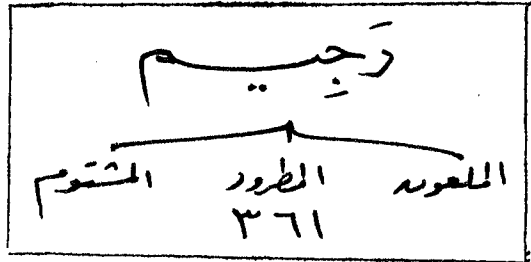 رَجِيم
الملعون المطرود المشتوم
٣٦١